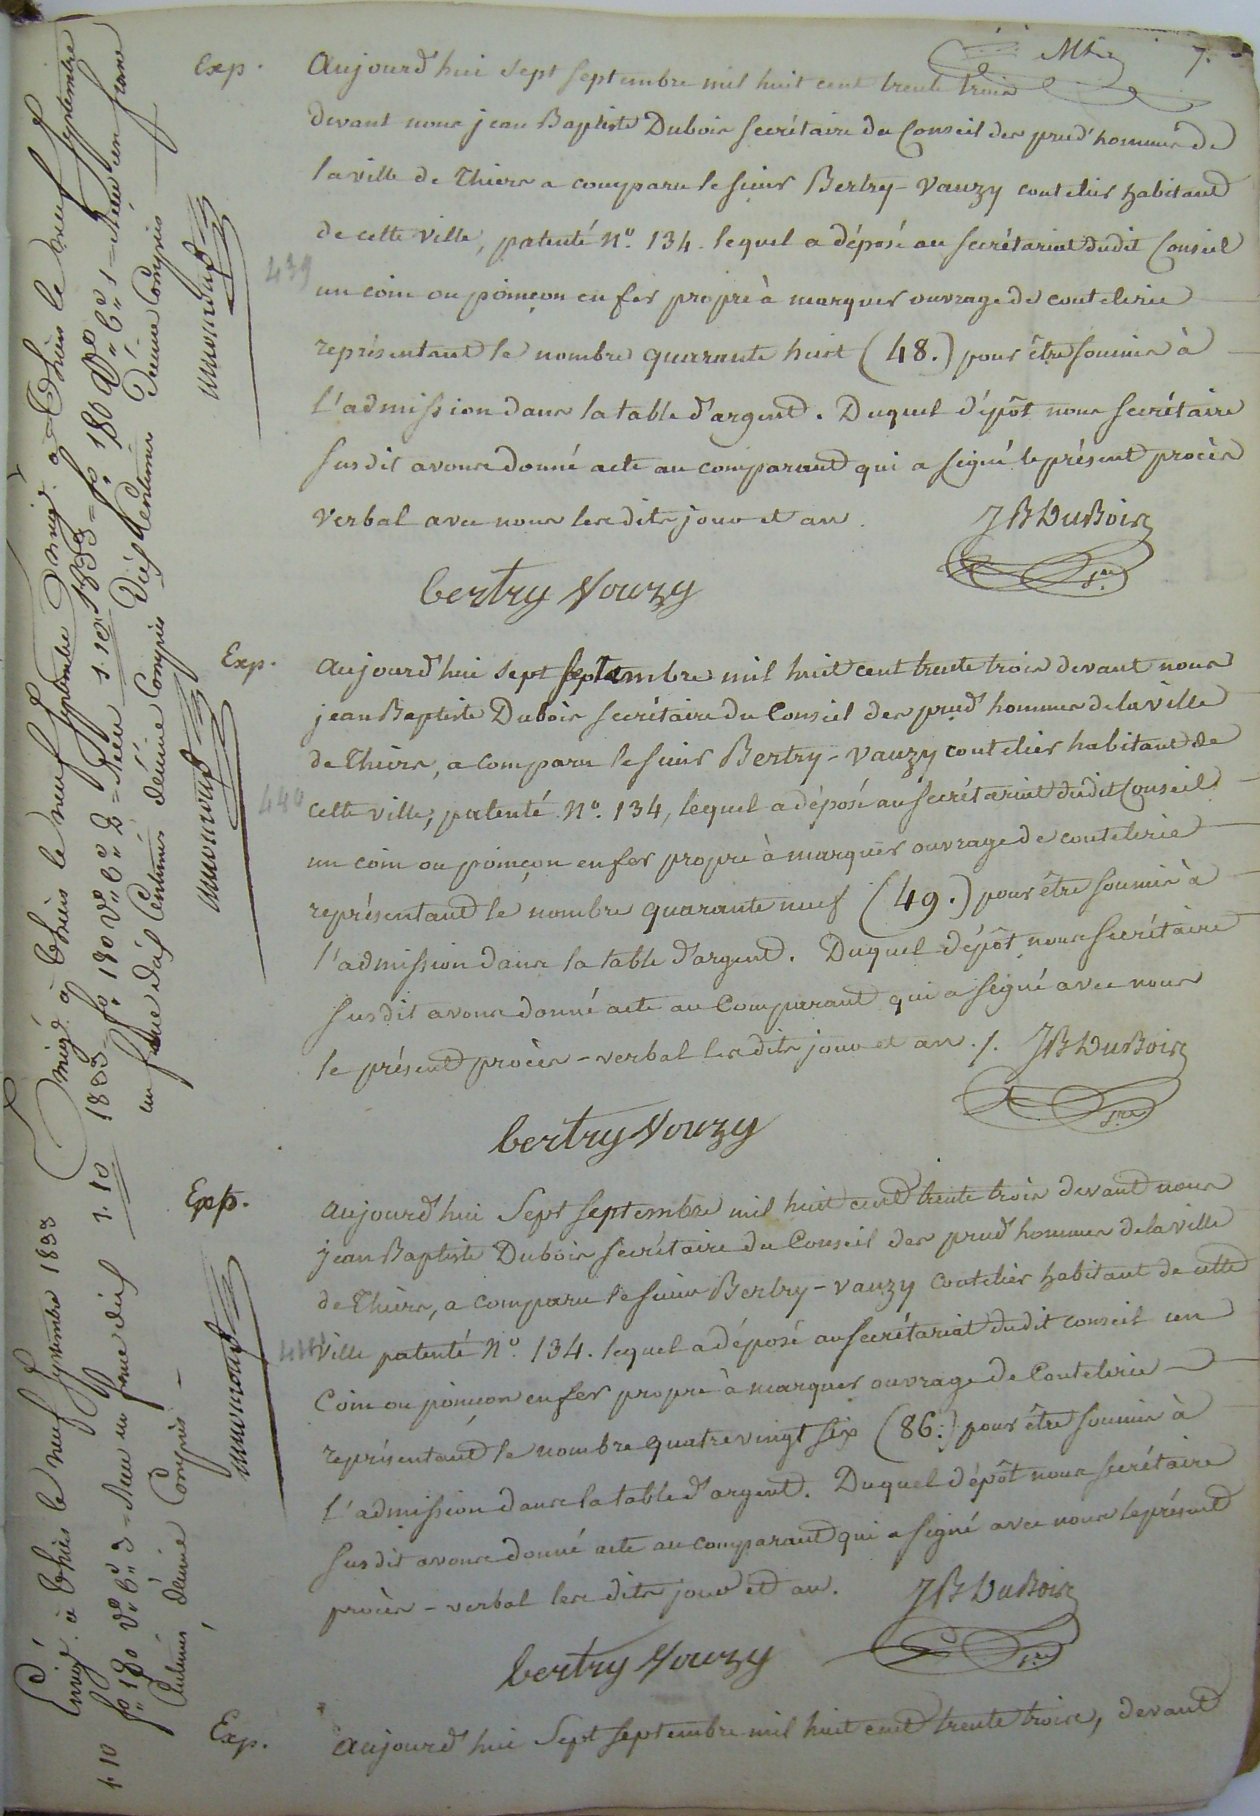 7.
Exp.
Aujourd'hui sept septembre mil huit cent trente trois
devant nous jean Baptiste Dubois secrétaire du Conseil des prud'hommes de
la ville de Thiers a comparu le sieur Bertry-Vauzy coutelier habitant
de cette ville, patenté N.o 134. lequel a déposé au secrétariat dudit Conseil
439
un coin ou poinçon en fer propre à marquer ouvrage de coutelerie
représentant le nombre quarante huit (48.) pour être soumis à
l'admission dans la table d'argent. Duquel dépôt nous secrétaire
susdit avons donné acte au comparant qui a signé le présent procès
verbal avec nous lesdits jour et an.
JB DuBois
bertry Vouzy
Exp.
Aujourd'hui sept septembre mil huit cent trente trois devant nous
jean Baptiste Dubois secrétaire du Conseil des prud'hommes de la ville
de Thiers, a comparu le sieur Bertry-Vauzy coutelier habitant de
440
cette ville, patenté N.o 134, lequel a déposé au secrétariat dudit Conseil
un coin ou poinçon en fer propre à marquer ouvrage de coutelerie
représentant le nombre quarante neuf (49.) pour être soumis à
l'admission dans la table d'argent. Duquel dépôt nous secrétaire
susdit avons donné acte au Comparant qui a signé avec nous
le présent procès-verbal lesdits jour et an ./. JB DuBois
bertry Vouzy
Exp.
Aujourd'hui Sept septembre mil huit cent trente trois devant nous
jean Baptiste Dubois secrétaire du Conseil des prud'hommes de la ville
de Thiers, a comparu le sieur Bertry-vauzy Coutelier habitant de cette
441
ville patenté N.o 134. lequel a déposé au secrétariat dudit conseil un
Coin ou poinçon en fer propre à marquer ouvrage de Coutelerie
représentant le nombre quatre vingt six (86.) pour être soumis à
l'admission dans la table d'argent. Duquel dépôt nous secrétaire
susdit avons donné acte au comparant qui a signé avec nous le présent
procès-verbal lesdits jour et an.
JB DuBois
bertry Vouzy
Exp.
Aujourd'hui Sept septembre mil huit cent trente trois, devant
à Thiers le neuf Septembre
1833 = f.o 180 V.o C. 1 = Reçu un franc
Dix Centimes Décime Compris
1.10
à Thiers le neuf Septembre
1833 = f.o 180 V.o C. 2 = Reçu
un franc dix Centimes Décime Compris
1.10
à Thiers le neuf Septembre 1833
f.o 180 V.o C. 3 = Reçu un franc dix
Centimes Décime Compris
1.10